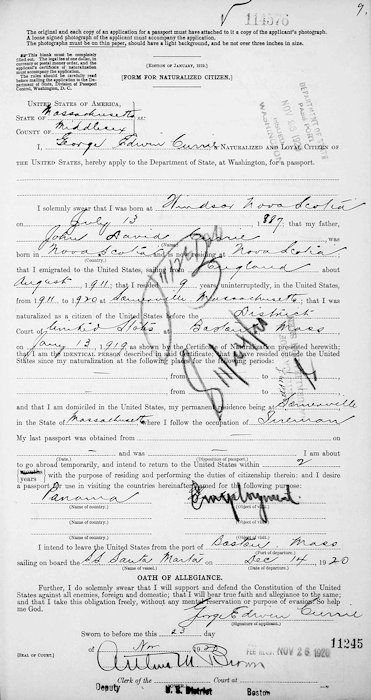 114376
9.
The original and each copy of an application for a passport must have attached to it a copy of the applicant's photograph.
A loose signed photograph of the applicant must accompany the application.
The photographs must be on thin paper, should have a light background, and be not over three inches in size.
This blank must be completely
filled out. The legal fee of one dollar, in
currency or postal money order, and the
applicant's certificate of naturalization
must accompany the application.
The rules should be carefully read
before mailing the application to the Department
of State, Division of Passport
Control, Washington, D. C.
[EDITION OF JANUARY, 1919.]
[FORM FOR NATURALIZED CITIZEN.]
UNITED STATES OF AMERICA,
STATE OF Massachusetts
COUNTY OF Middlesex
ss:
I, George Edwin Currie, A NATURALIZED AND LOYAL CITIZEN OF
THE UNITED STATES, hereby apply to the Department of State, at Washington, for a passport.
I solemnly swear that I was born at Windsor Nova Scotia
on July 13, 1887; that my father,
John David Currie, was
(Name)
born in Nova Scotia and is now residing at Nova Scotia
(Country.)
that I emigrated to the United States, from England about
August, 1911; that I resided 9 years, uninterruptedly, in the United States,
from 1911 to 1920 at Somerville Massachusetts; that I was
naturalized as a citizen of the United States before the District
Court of United States at Boston Mass
on Jany 13, 1919 as shown by the Certificate of Naturalization presented herewith;
that I am the IDENTICAL PERSON described in said Certificate; that I have resided outside the United
States since my naturalization at the following places for the following periods:
from
to
from
to
and that I am domiciled in the United States, my permanent residence being at Somerville
in the State of Massachusetts where I follow the occupation of Fireman
My last passport was obtained from
on
and was
I am about
(Date.)
(Disposition of passport.)
to go abroad temporarily, and intend to return to the United States within 2
months
years
with the purpose of residing and performing the duties of citizenship therein; and I desire
a passport for use in visiting the countries hereinafter named for the following purpose:
Panama
Employment
(Name of country.)
(Object of visit.)
(Name of country.)
(Object of visit.)
(Name of country.)
(Object of visit.)
I intend to leave the United States from the port of Boston Mass
(Port of departure.)
sailing on board the SS Santa Marta on Dec 14, 1920
(Name of vessel.)
(Date of departure.)
OATH OF ALLEGIANCE.
Further, I do solemnly swear that I will support and defend the Constitution of the United
States against all enemies, foreign and domestic; that I will bear true faith and allegiance to the same;
and that I take this obligation freely, without any mental reservation or purpose of evasion: So help
me God.
George Edwin Currie
(Signature of applicant.)
Sworn to before me this 23 day
of Nov 1920
FEE RECD. NOV 26 1920
11245
[SEAL OF COURT.]
Arthur M Brown
Clerk of the Court at
Deputy U. S. District Boston